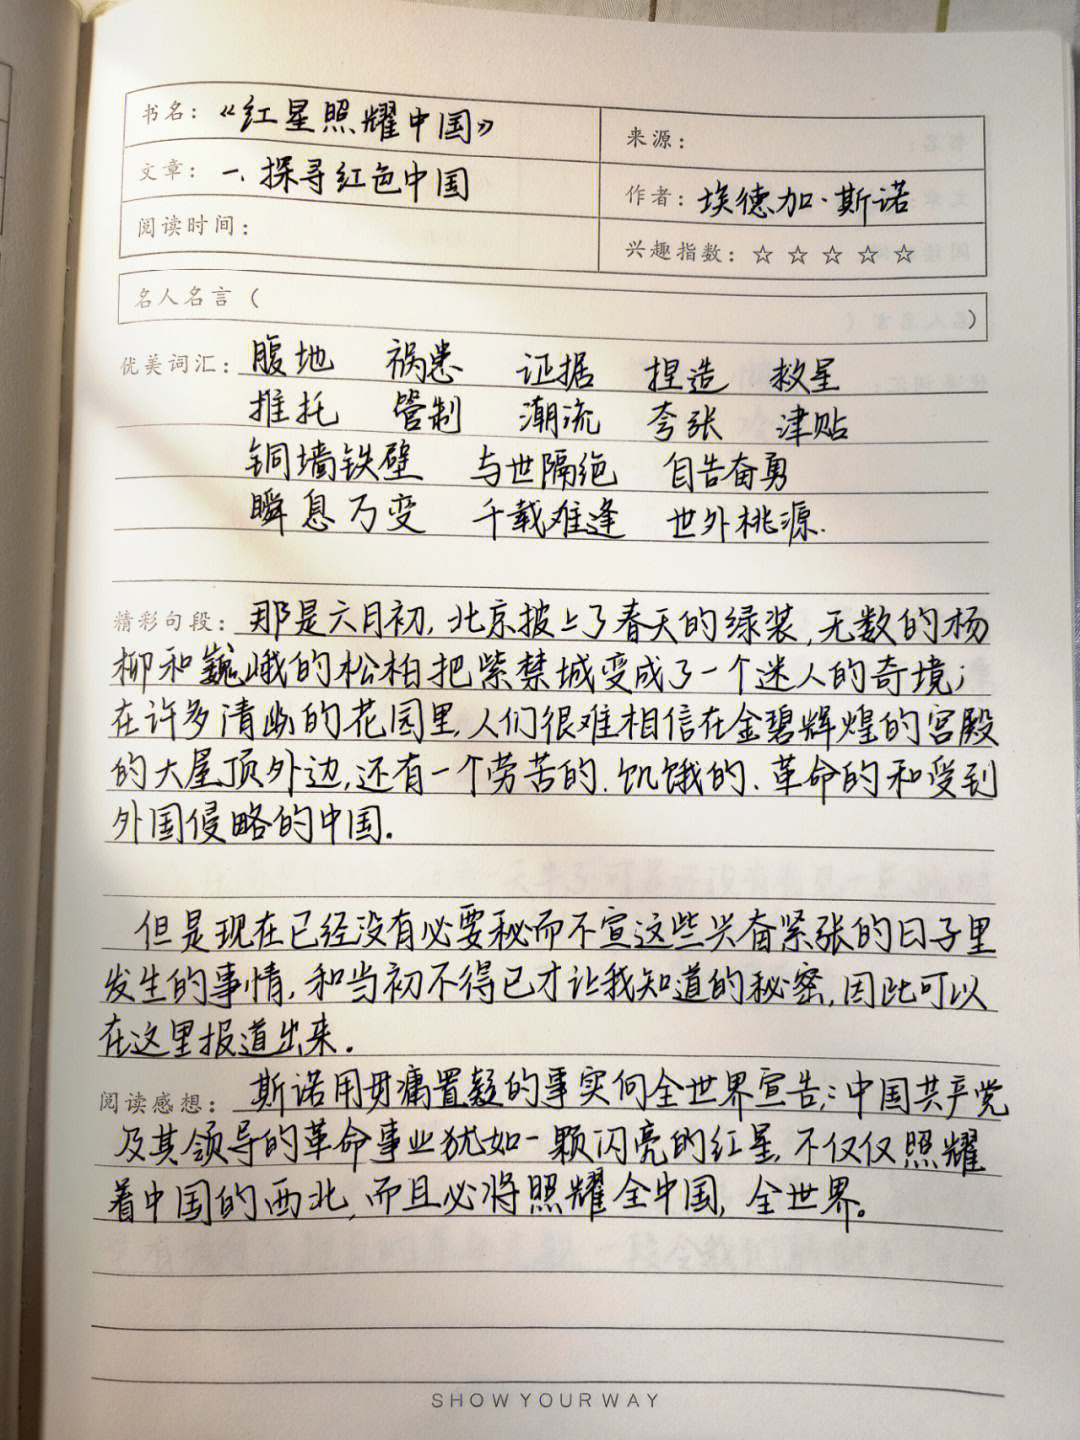 书名：《红星照耀中国》
来源：
文章：一、探寻红色中国
作者：埃德加·斯诺
阅读时间：
兴趣指数：☆ ☆ ☆ ☆ ☆
名人名言（ ）
优美词汇：腹地 祸患 证据 捏造 救星
推托 管制 潮流 夸张 津贴
铜墙铁壁 与世隔绝 自告奋勇
瞬息万变 千载难逢 世外桃源.
精彩句段：那是六月初,北京披上了春天的绿装,无数的杨
柳和巍峨的松柏把紫禁城变成了一个迷人的奇境;
在许多清幽的花园里,人们很难相信在金碧辉煌的宫殿
的大屋顶外边,还有一个劳苦的、饥饿的、革命的和受到
外国侵略的中国.
但是现在已经没有必要秘而不宣这些兴奋紧张的日子里
发生的事情,和当初不得已才让我知道的秘密,因此可以
在这里报道出来.
阅读感想：斯诺用毋庸置疑的事实向全世界宣告:中国共产党
及其领导的革命事业犹如一颗闪亮的红星,不仅仅照耀
着中国的西北,而且必将照耀全中国,全世界。
SHOW YOUR WAY